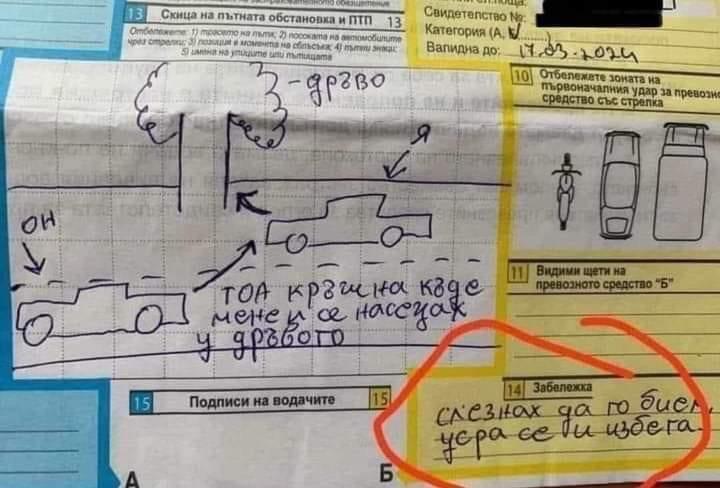 13 Скица на пътната обстановка и ПТП 13
Отбележете: 1) трасето на пътя; 2) посоката на автомобилите
чрез стрелки; 3) позиция в момента на сблъсъка; 4) пътни знаци;
5) имена на улиците или пътищата
Свидетелство №:
Категория (А, В
Валидна до: 17.03.2024
-дръво
Я
ОН
ТОА кръшна къде
мене и се насецах
у дръвото
10 Отбележете зоната на
първоначалния удар за превозно
средство със стрелка
11 Видими щети на
превозното средство "Б"
15 Подписи на водачите 15
А
Б
14 Забележка
слезнах да го бием,
усра се и избега.